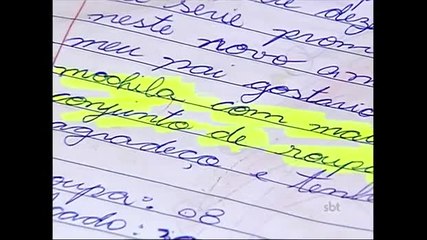 série prom
neste novo an
meu pai gostario
mochila com mai
conjunto de roupa
agradeço e tenh
oupa: 08
ado: 30
sbt